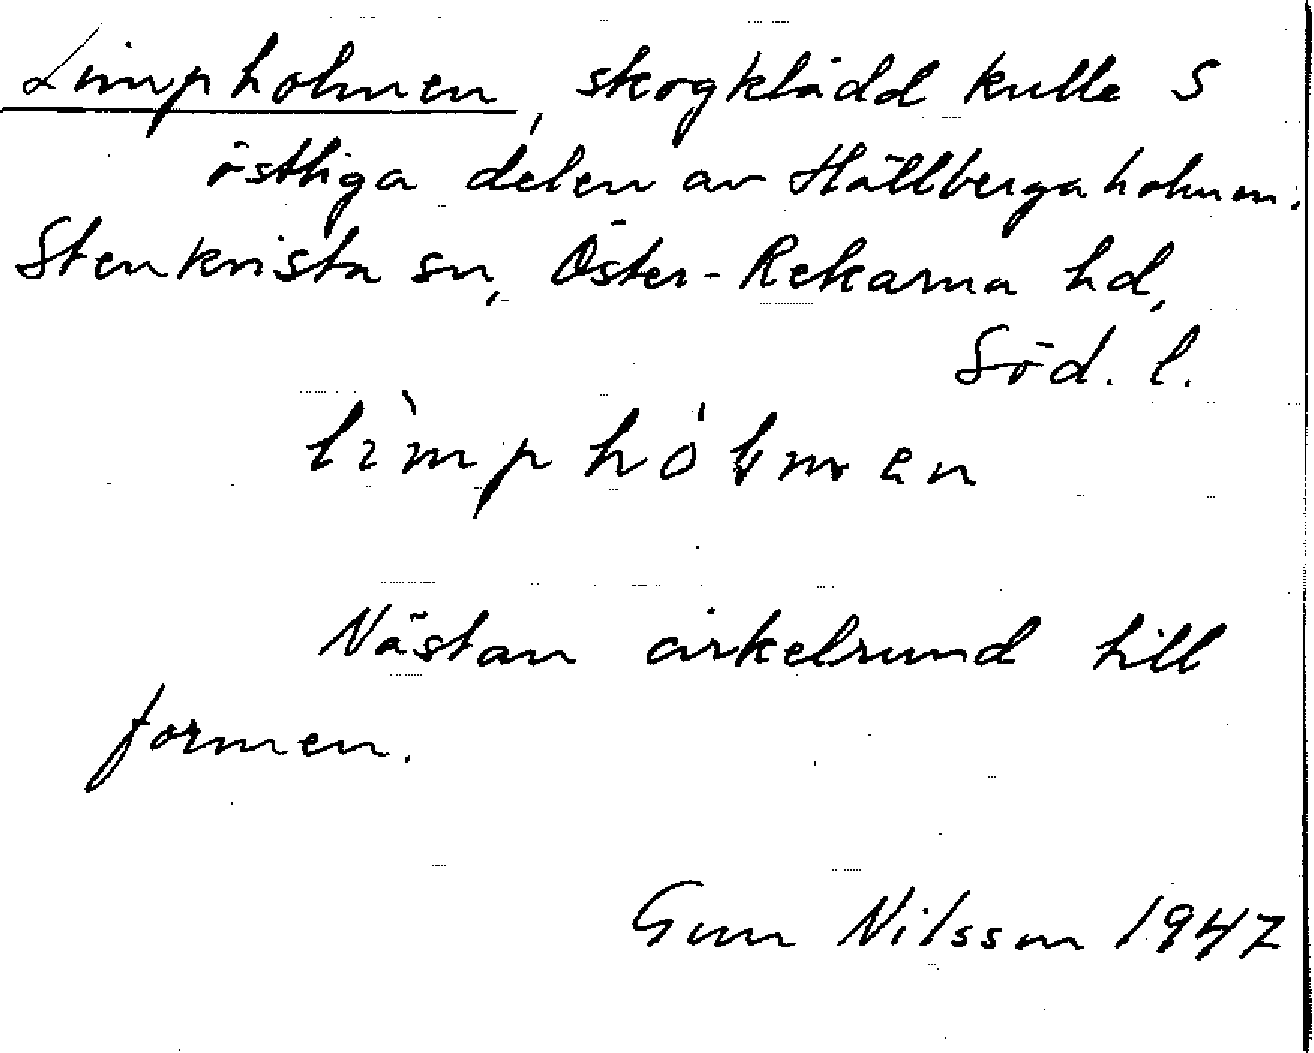 Limpholmen, skogklädd kulle S
östliga delen av Hällbergaholmen.
Stenkvista sn, Öster-Rekarne hd,
Söd. l.
lìmphólmen
Nästan cirkelrund till
formen.
Gun Nilsson 1947